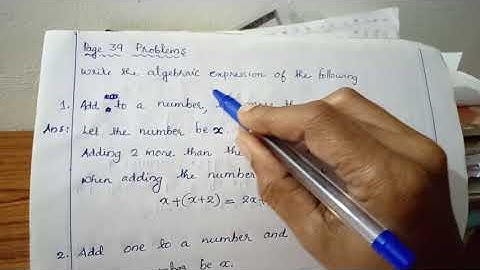 Page 39 Problems
Write the algebraic expression of the following
1. Add to a number, more
Ans: Let the number be x.
Adding 2 more than the
When adding the number
x+(x+2) = 2x+
2. Add one to a number and
be x.